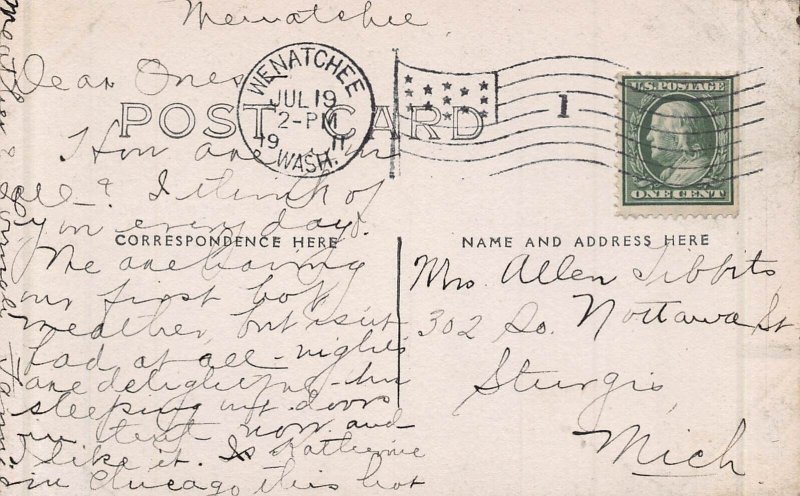 Wenatchee
Dear Ones
WENATCHEE
JUL 19
2-PM
19 11
WASH.
1
U.S. POSTAGE
ONE CENT
POST CARD
How are
all? I think of
you every day.
CORRESPONDENCE HERE
We are having
our first hot
weather, but isn't
bad at all - nights
are delightful - Am
sleeping out doors
in tent now and
I like it. Is Katherine
in Chicago this hot
weather
NAME AND ADDRESS HERE
Mrs Allen Tibbits
302 So. Nottawa St
Sturgis,
Mich